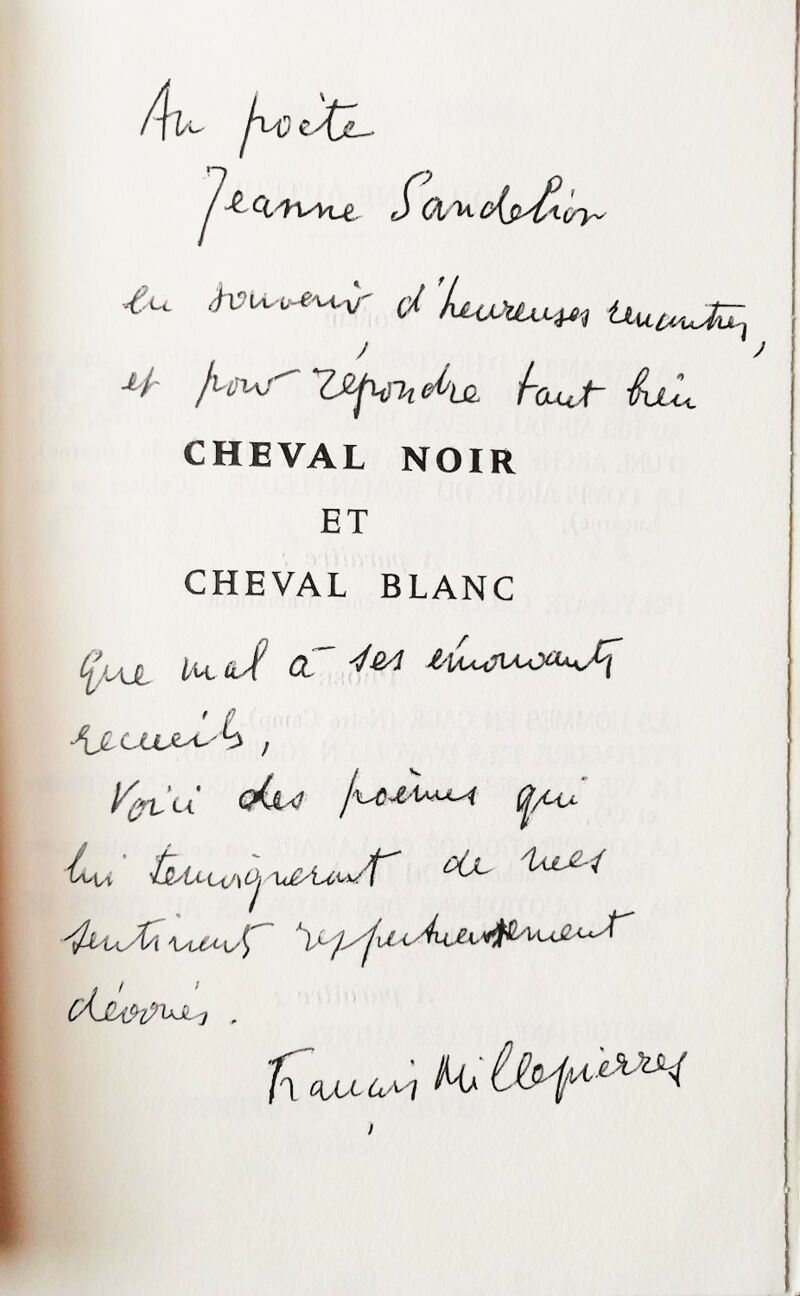 Au poète
Jeanne Sandelion
en souvenir d'heureuses rencontres,
et pour répondre tant bien
CHEVAL NOIR
ET
CHEVAL BLANC
Que mal à ses émouvants
recueils,
Voici des poèmes qui
lui témoigneront de mes
sentiments respectueusement
dévoués.
François Millepierres